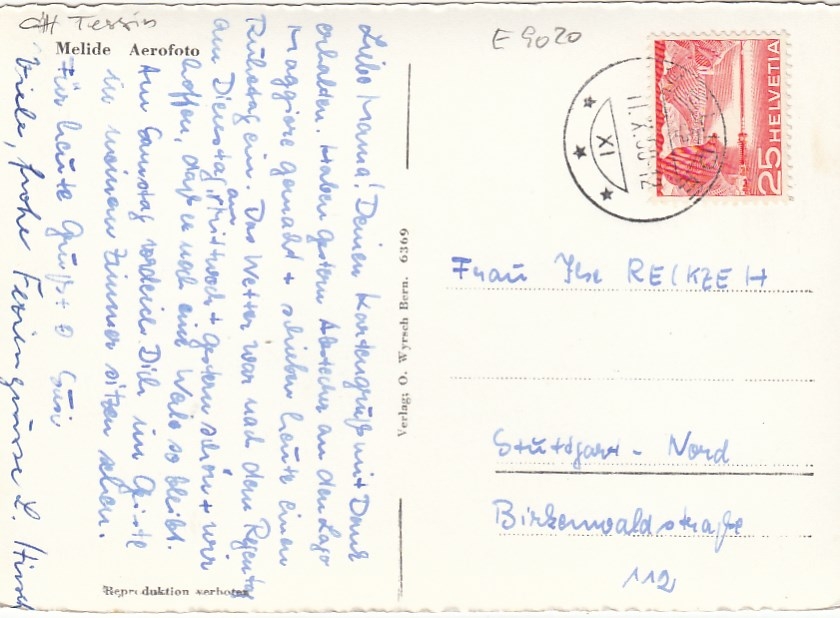 CH Tessin
E 9020
Melide Aerofoto
Liebe Mama! Deinen Kartengruß mit Dank
erhalten. Haben gestern Abstecher an den Lago
Maggiore gemacht + schieben heute einen
Ruhetag ein. Das Wetter war nach dem Regentag
am Dienstag am Mittwoch + gestern schön + wir
hoffen, daß es noch eine Weile so bleibt.
Am Samstag werde ich Dich im Geiste
in meinem Zimmer sitzen sehen.
Für heute Gruß +
Viele, frohe Tessingrüsse L. Hirsch
Reproduktion verboten
Verlag: O. Wyrsch Bern. 6369
IX
25 HELVETIA
Frau Ilse RECKZEH
Stuttgart - Nord
Birkenwaldstraße
112